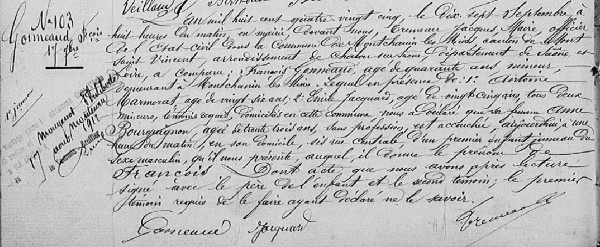 N° 103
Gormeaud
17 7bre
L'an mil huit cent quatre vingt cinq, le Dix sept Septembre à
huit heures du matin, en mairie, devant nous, Jacques Maire, officier
de l'Etat-civil dans la Commune de Montchanin les Mines, canton de Mont
Saint Vincent, arrondissement de Chalon-sur-Saône, département de Saône et
Loire, a comparu: François Gormeaud, agé de quarante ans, mineur,
demeurant à Montchanin les Mines. Lequel en présence de 1° Antoine
agé de vingt six ans, 2° Emile Jacquard, agé de vingt cinq ans, tous deux
mineurs, témoins requis, domiciliés en cette commune nous a déclaré que sa femme Anne
Bourguignon, agée de trente trois ans, sans profession, est accouchée, aujourd'hui à une
heure du matin, en son domicile, rue Centrale d'un premier enfant jumeau du
sexe masculin, qu'il nous présente, auquel il donne le prénom de
François. Dont acte, que nous avons après lecture
signé avec le père de l'enfant et le second témoin; le premier
témoin requis de le faire ayant déclaré ne le savoir.
Gormeaud Jacquard